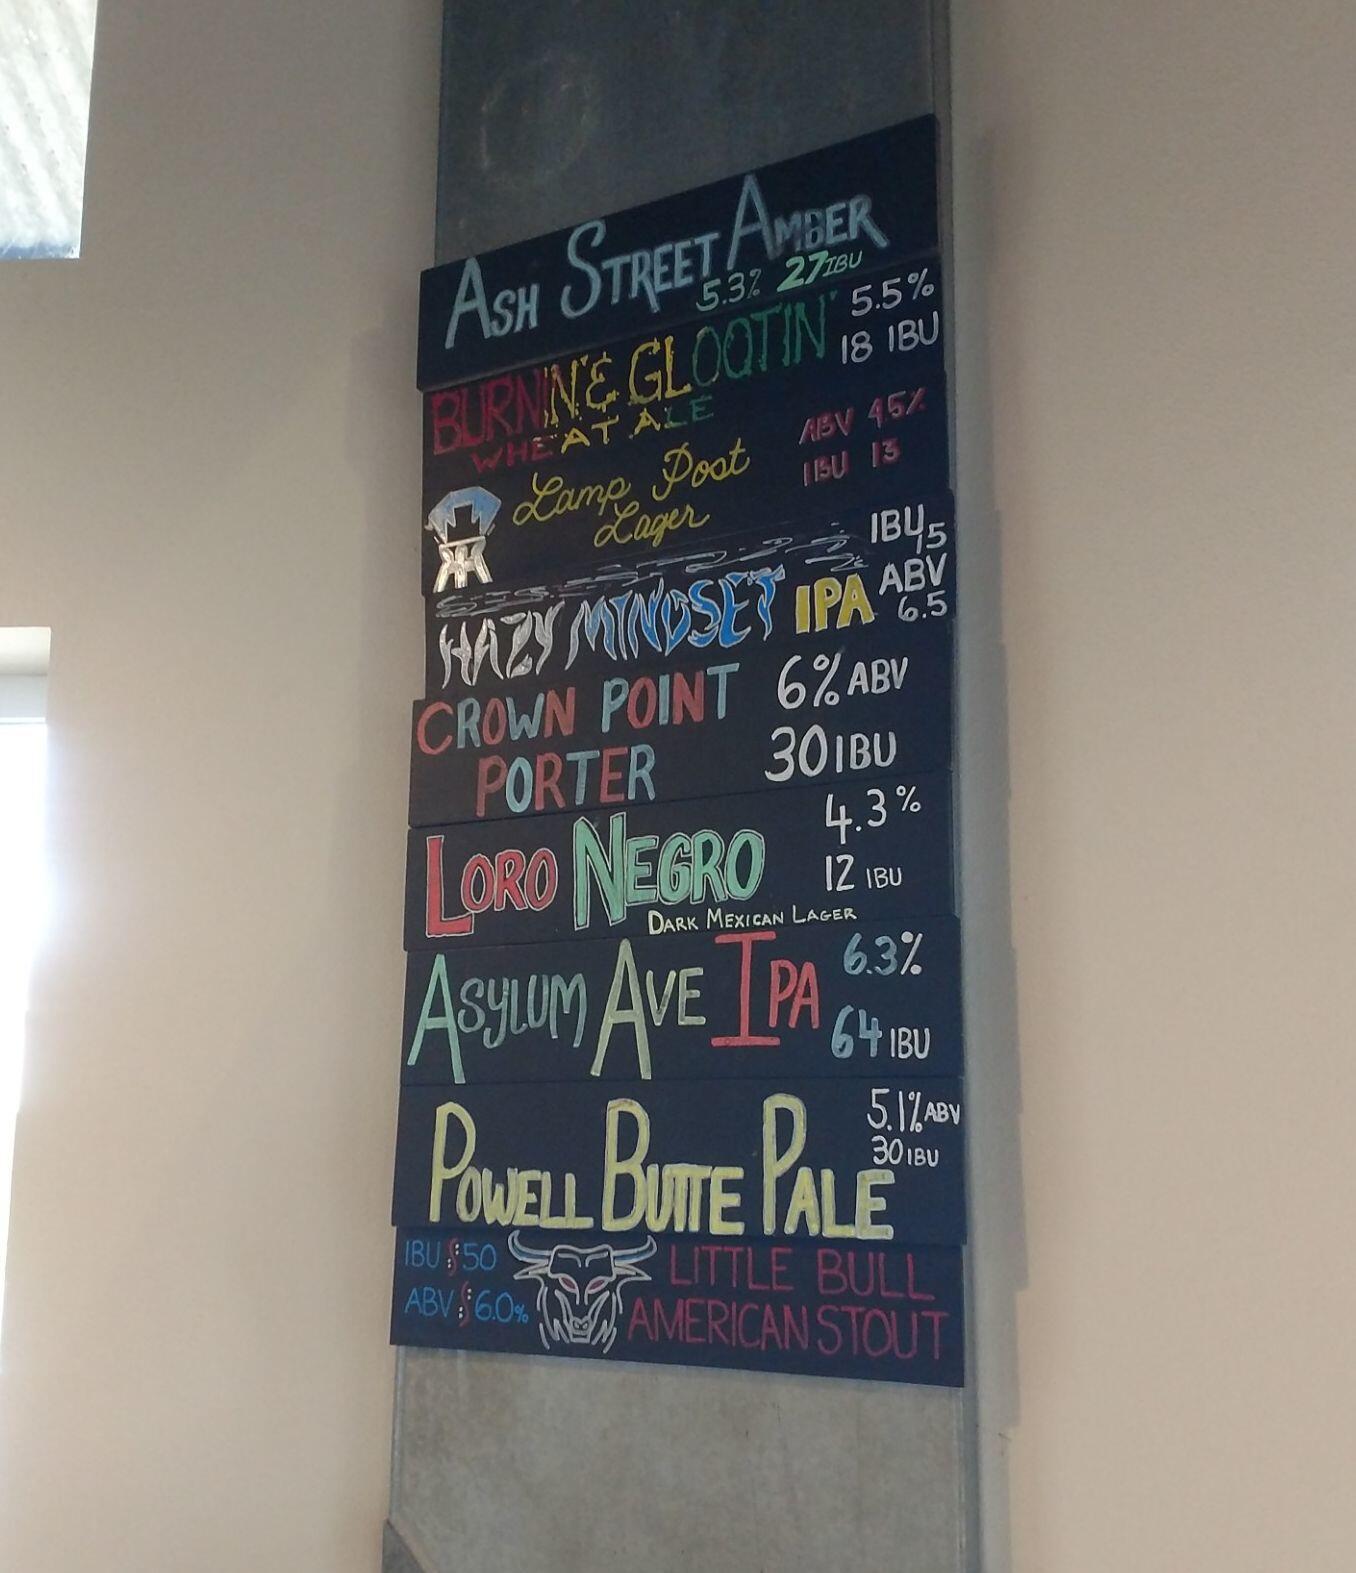 ASH STREET AMBER
5.3% 27 IBU
BURNIN' & GLOOTIN' 5.5%
WHEAT ALE 18 IBU
Lamp Post ABV 4.5%
Lager IBU 13
HAZY MINDSET IPA IBU 15
ABV 6.5
CROWN POINT 6% ABV
PORTER 30 IBU
LORO NEGRO 4.3%
12 IBU
DARK MEXICAN LAGER
ASYLUM AVE IPA 6.3%
64 IBU
5.1% ABV
30 IBU
POWELL BUTTE PALE
IBU 50 LITTLE BULL
ABV 6.0% AMERICAN STOUT